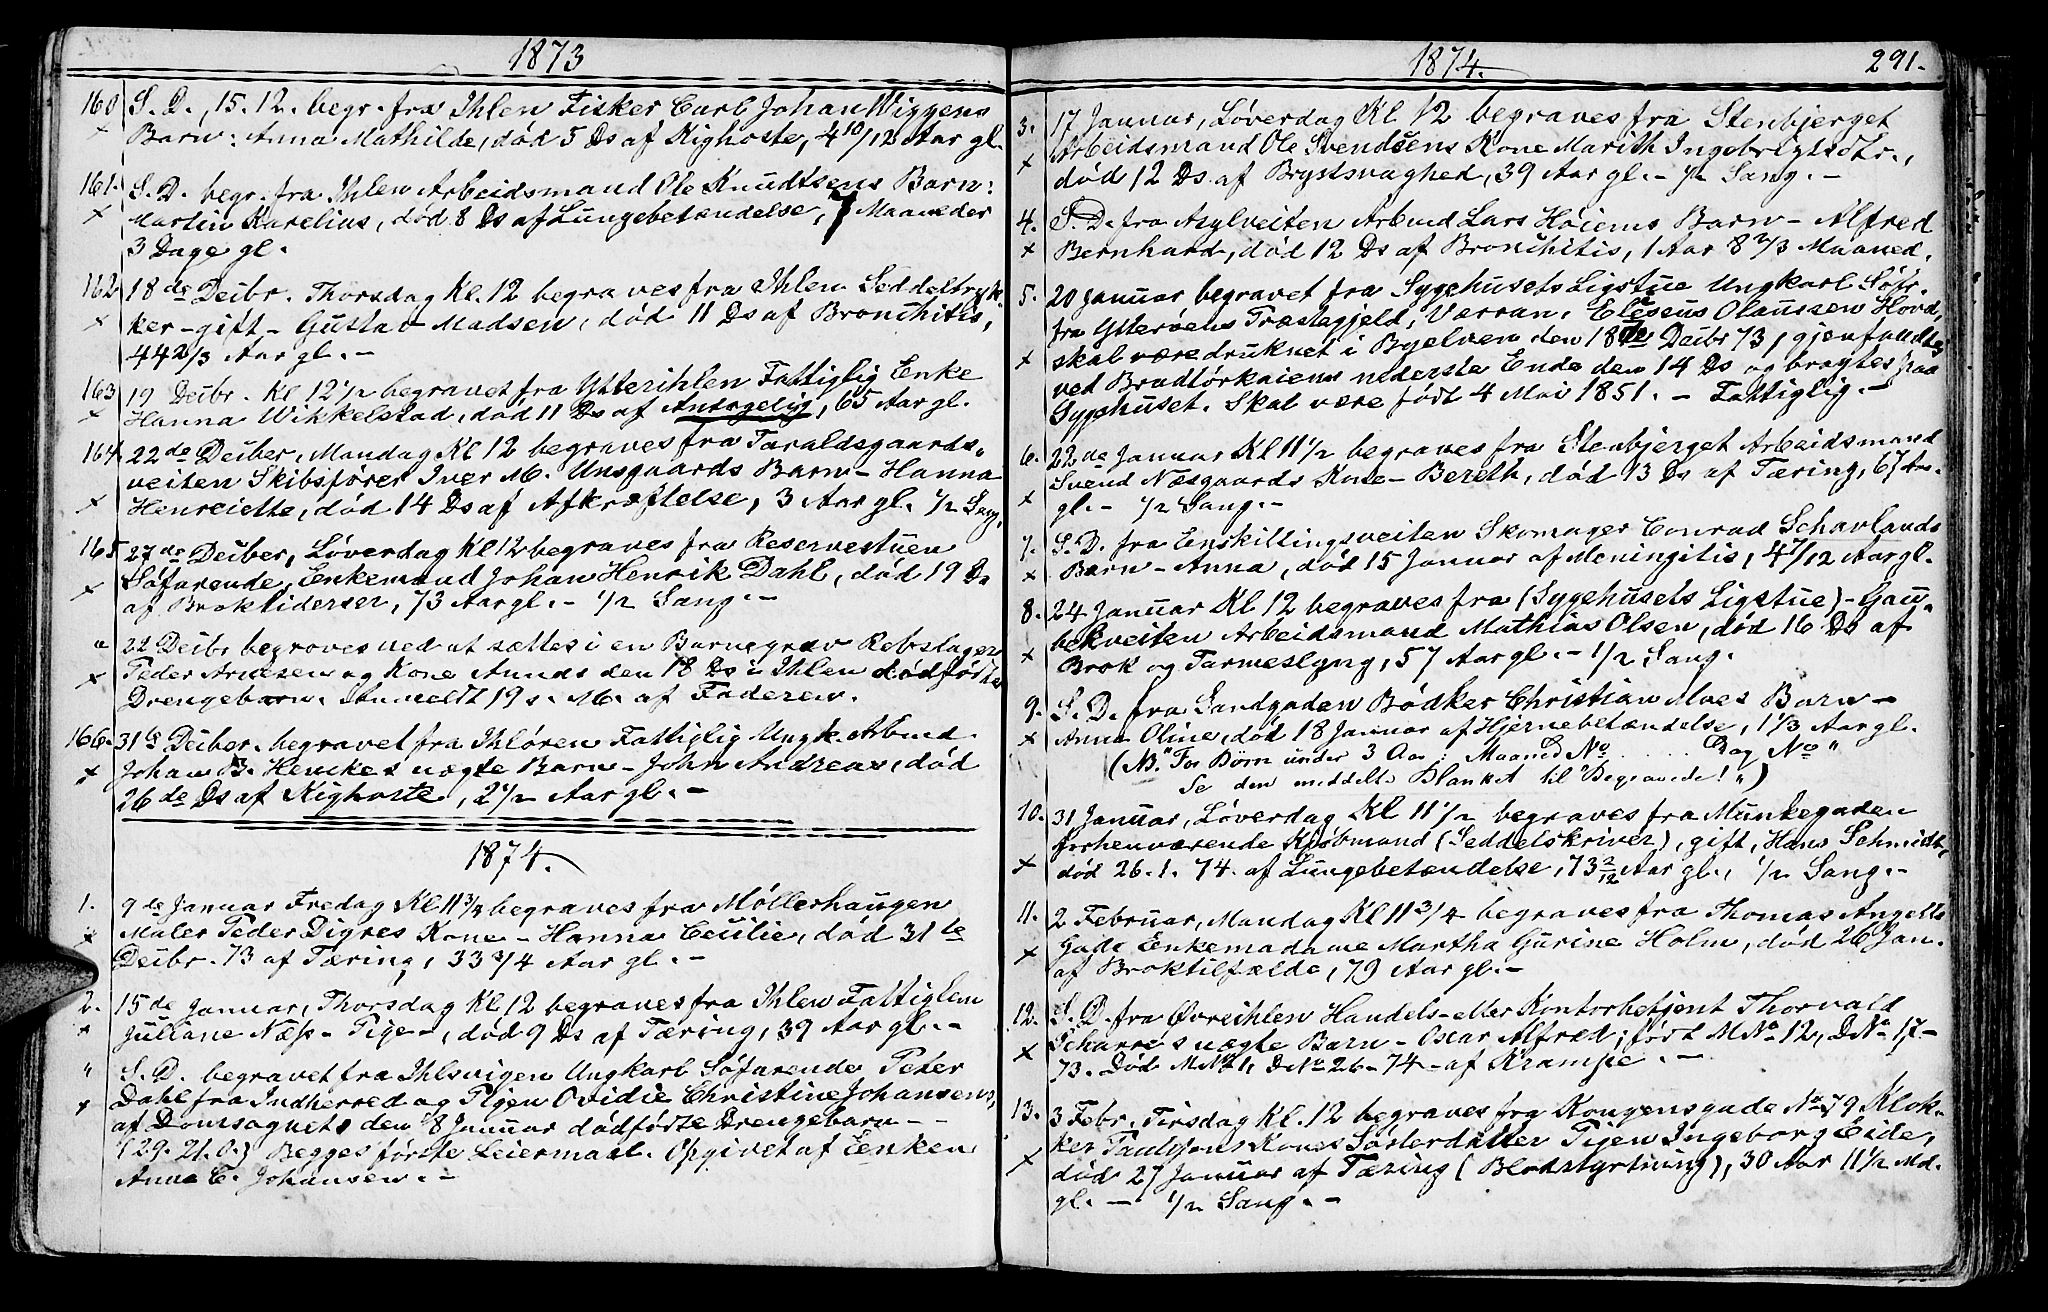 1873
160 S. D., 15.12. begr. fra Ihlen Fisker Carl Johan Wiggens
× Barn: Anna Mathilde, död 5 Ds af Kighoste, 4 10/12 Aar gl.
161. S. D. begr. fra Ihlen Arbeidsmand Ole Knudtsens Barn:
× Martin Karelius, död 8 Ds af Lungebetændelse, 7 Maaneder
3 Dage gl.
162 18de Decbr. Thorsdag Kl. 12 begraves fra Ihlen Seddeltryk-
× ker - gift - Gustav Madsen, död 11 Ds af Bronchitis,
44 2/3 Aar gl. -
163 19 Decbr. Kl 12 1/2 begravet fra Ytterihlen Fattiglig Enke
× Hanna Wikkelstad, död 11 Ds af Antagelig, 65 Aar gl.
164. 22de Decber, Mandag Kl 12 begraves fra Taraldsgaards-
veiten Skibsförer Iver M. Unsgaards Barn - Hanna
× Henriette, död 14 Ds af Afkræftelse, 3 Aar gl. 1/2 Sang.
165. 27de Decber, Löverdag Kl 12 begraves fra Reservestuen
Söfarende, Enkemand Johan Henrik Dahl, död 19 Ds
× af Brokliderser, 73 Aar gl. - 1/2 Sang. -
" 22 Decbr begroves ved at sættes i en Barnegrav Rebslager
× Peder Arntsen og Kone Annas den 18 Ds i Ihlen dödfödte
Drengebarn. Anmeldt 19 s. M. af Faderen.
166. 31te Decber. begravet fra Ihlören Fattiglig Ungk. Arbmd
× Johan B. Henckes uægte Barn - John Andreas, död
26de Ds af Kighoste, 2 1/2 Aar gl. -
1874.
1. 9de Januar Fredag Kl 11 3/4 begraves fra Möllerhaugen
× Maler Peder Digres Kone - Hanna Cecilie, död 31te
Decbr. 73 af Tæring, 33 3/4 Aar gl. -
2. 15de Januar, Thorsdag Kl 12 begraves fra Ihlen Fattiglem
× Juliane Næss - Pige -, död 9 Ds af Tæring, 39 Aar gl. -
" S. D. begravet fra Ihlsvigen Ungkarl Söfarende Peter
× Dahl fra Indherred og Pigen Ovidie Christine Johansens,
af Domsognets den 8 Januar dödfödte Drengebarn - -
(29. 21. 0.) Begges förste Leiermaal. Opgivet af Eenken
Anne C. Johansen. -
1874.
291.
3. 17 Januar, Löverdag Kl 12 begraves fra Stenbjerget
× Arbeidsmand Ole Svendsens Kone Marith Ingebrigtsdtr.,
död 12 Ds. af Brystsvaghed, 39 Aar gl. - 1/2 Sang. -
4. S. D. fra Asylveiten Arbmd Lars Höiems Barn - Alfred
× Bernhard, död 12 Ds af Bronchitis, 1 Aar 8 2/3 Maaned.
5. 20 Januar begravet fra Sygehusets Ligstue Ungkarl Söfr.
fra Ytteröens Præstegjeld, Værran, Eliseus Olaussen Hovd,
× skal være druknet i Byelven den 18de Decbr 73, gjenfandtes
ved Bradtörkaiens nederste Ende den 14 Ds og bragtes paa
Sygehuset. Skal være födt 4 Mai 1851. - Fattiglig. -
6. 22de Januar Kl 11 1/2 begraves fra Stenbjerget Arbeidsmand
Svend Næsgaards Kone - Bereth, död 13 Ds af Tæring, 67 Aar
× gl. - 1/2 Sang. -
7. S. D. fra Enskillingsveiten Skomager Conrad Schavlands
× Barn - Anna, död 15 Januar af Meningitis, 4 7/12 Aar gl.
8. 24 Januar Kl 12 begraves fra (Sygehusets Ligstue) - Gau-
bekveiten Arbeidsmand Mathias Olsen, död 16 Ds af
× Brok og Tarmeslyng, 57 Aar gl. - 1/2 Sang.
9. S. D. fra Sandgaden Bödker Christian Moes Barn -
× Anna Oline, död 18 Januar af Hjernebetændelse, 1 1/3 Aar gl.
(NB. "For Börn under 3 Aar: Maaned No ..... Dag No "
Se den meddelte Blanket til "Begravede!")
10. 31 Januar, Löverdag Kl 11 1/2 begraves fra Munkegaden
forhenværende Kjöbmand (Seddelskriver), gift, Hans Schmidt,
× död 26. 1. 74. af Lungebetændelse, 73 2/12 Aar gl., 1/2 Sang. -
11. 2 Februar, Mandag Kl 11 3/4 begraves fra Thomas Angells
× Gade Enkemadame Martha Gurine Holm, död 26 Jan.
af Broktilfælde, 79 Aar gl. -
12. S. D. fra Övreihlen Handels- eller Kontorbetjent Thorvald
× Scharres uægte Barn - Oscar Alfred; födt M No 12, D No 17 -
73. Död M No 1, D No 26 - 74 - af Krampe. -
13. 3 Febr. Tirsdag Kl. 12 begraves fra Kongensgade No 79 Klok-
ker Paulsens Kones Söster datter Pigen Ingeborg Eide,
× död 27 Januar af Tæring (Blodstyrtning), 30 Aar 11 1/2 Md.
gl. - 1/2 Sang. -